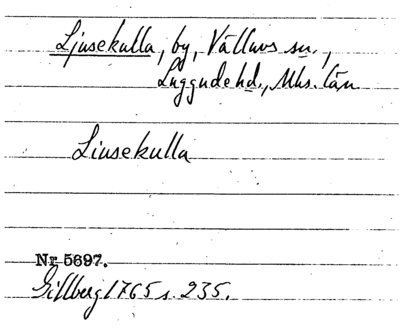 Ljusekulla, by, Vålluvs sn.,
Luggude hd., Mhs. län
Liusekulla
Nr 5697.
Gillberg 1765 s. 235.